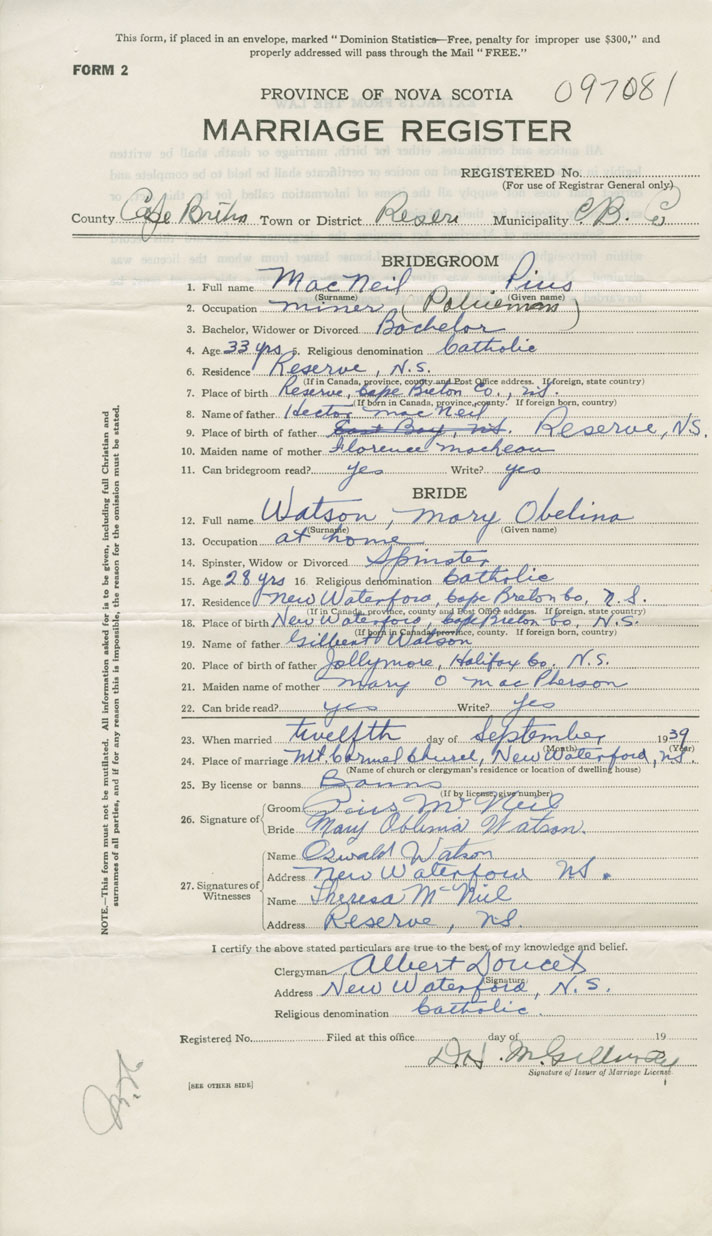 This form, if placed in an envelope, marked "Dominion Statistics—Free, penalty for improper use $300," and
properly addressed will pass through the Mail "FREE."
FORM 2
PROVINCE OF NOVA SCOTIA 097081
MARRIAGE REGISTER
REGISTERED No.
(For use of Registrar General only)
County Cape Breton Town or District Reserve Municipality C.B. Co
BRIDEGROOM
1. Full name MacNeil Pius
(Surname) (Given name)
2. Occupation miner (Policeman)
3. Bachelor, Widower or Divorced Bachelor
4. Age 33 yrs 5. Religious denomination Catholic
6. Residence Reserve, N.S.
(If in Canada, province, county and Post Office address. If foreign, state country)
7. Place of birth Reserve, Cape Breton Co., N.S.
(If born in Canada, province, county. If foreign born, country)
8. Name of father Hector MacNeil
9. Place of birth of father East Bay, N.S. Reserve, N.S.
10. Maiden name of mother Florence
11. Can bridegroom read? yes Write? yes
BRIDE
12. Full name Watson, Mary Obelina
(Surname) (Given name)
13. Occupation at home
14. Spinster, Widow or Divorced Spinster
15. Age 28 yrs 16. Religious denomination Catholic
17. Residence New Waterford, Cape Breton Co, N.S.
(If in Canada, province, county and Post Office address. If foreign, state country)
18. Place of birth New Waterford, Cape Breton Co, N.S.
(If born in Canada, province, county. If foreign born, country)
19. Name of father Gilbert Watson
20. Place of birth of father Jollymore, Halifax Co. N.S.
21. Maiden name of mother Mary O MacPherson
22. Can bride read? yes Write? yes
23. When married twelfth day of September 1939
(Month) (Year)
24. Place of marriage Mt. Carmel Church, New Waterford, N.S.
(Name of church or clergyman's residence or location of dwelling house)
25. By license or banns Banns
(If by license, give number)
26. Signature of
Groom Pius McNeil
Bride Mary Oblinia Watson.
27. Signatures of Witnesses
Name Oswald Watson
Address New Waterford NS.
Name Theresa McNeil
Address Reserve, NS.
I certify the above stated particulars are true to the best of my knowledge and belief.
Clergyman Albert Doucet
(Signature)
Address New Waterford, N.S.
Religious denomination Catholic
Registered No. Filed at this office day of 19
D.H. McGillivray
Signature of Issuer of Marriage License.
[SEE OTHER SIDE]
NOTE.—This form must not be mutilated. All information asked for is to be given, including full Christian and
surnames of all parties, and if for any reason this is impossible, the reason for the omission must be stated.